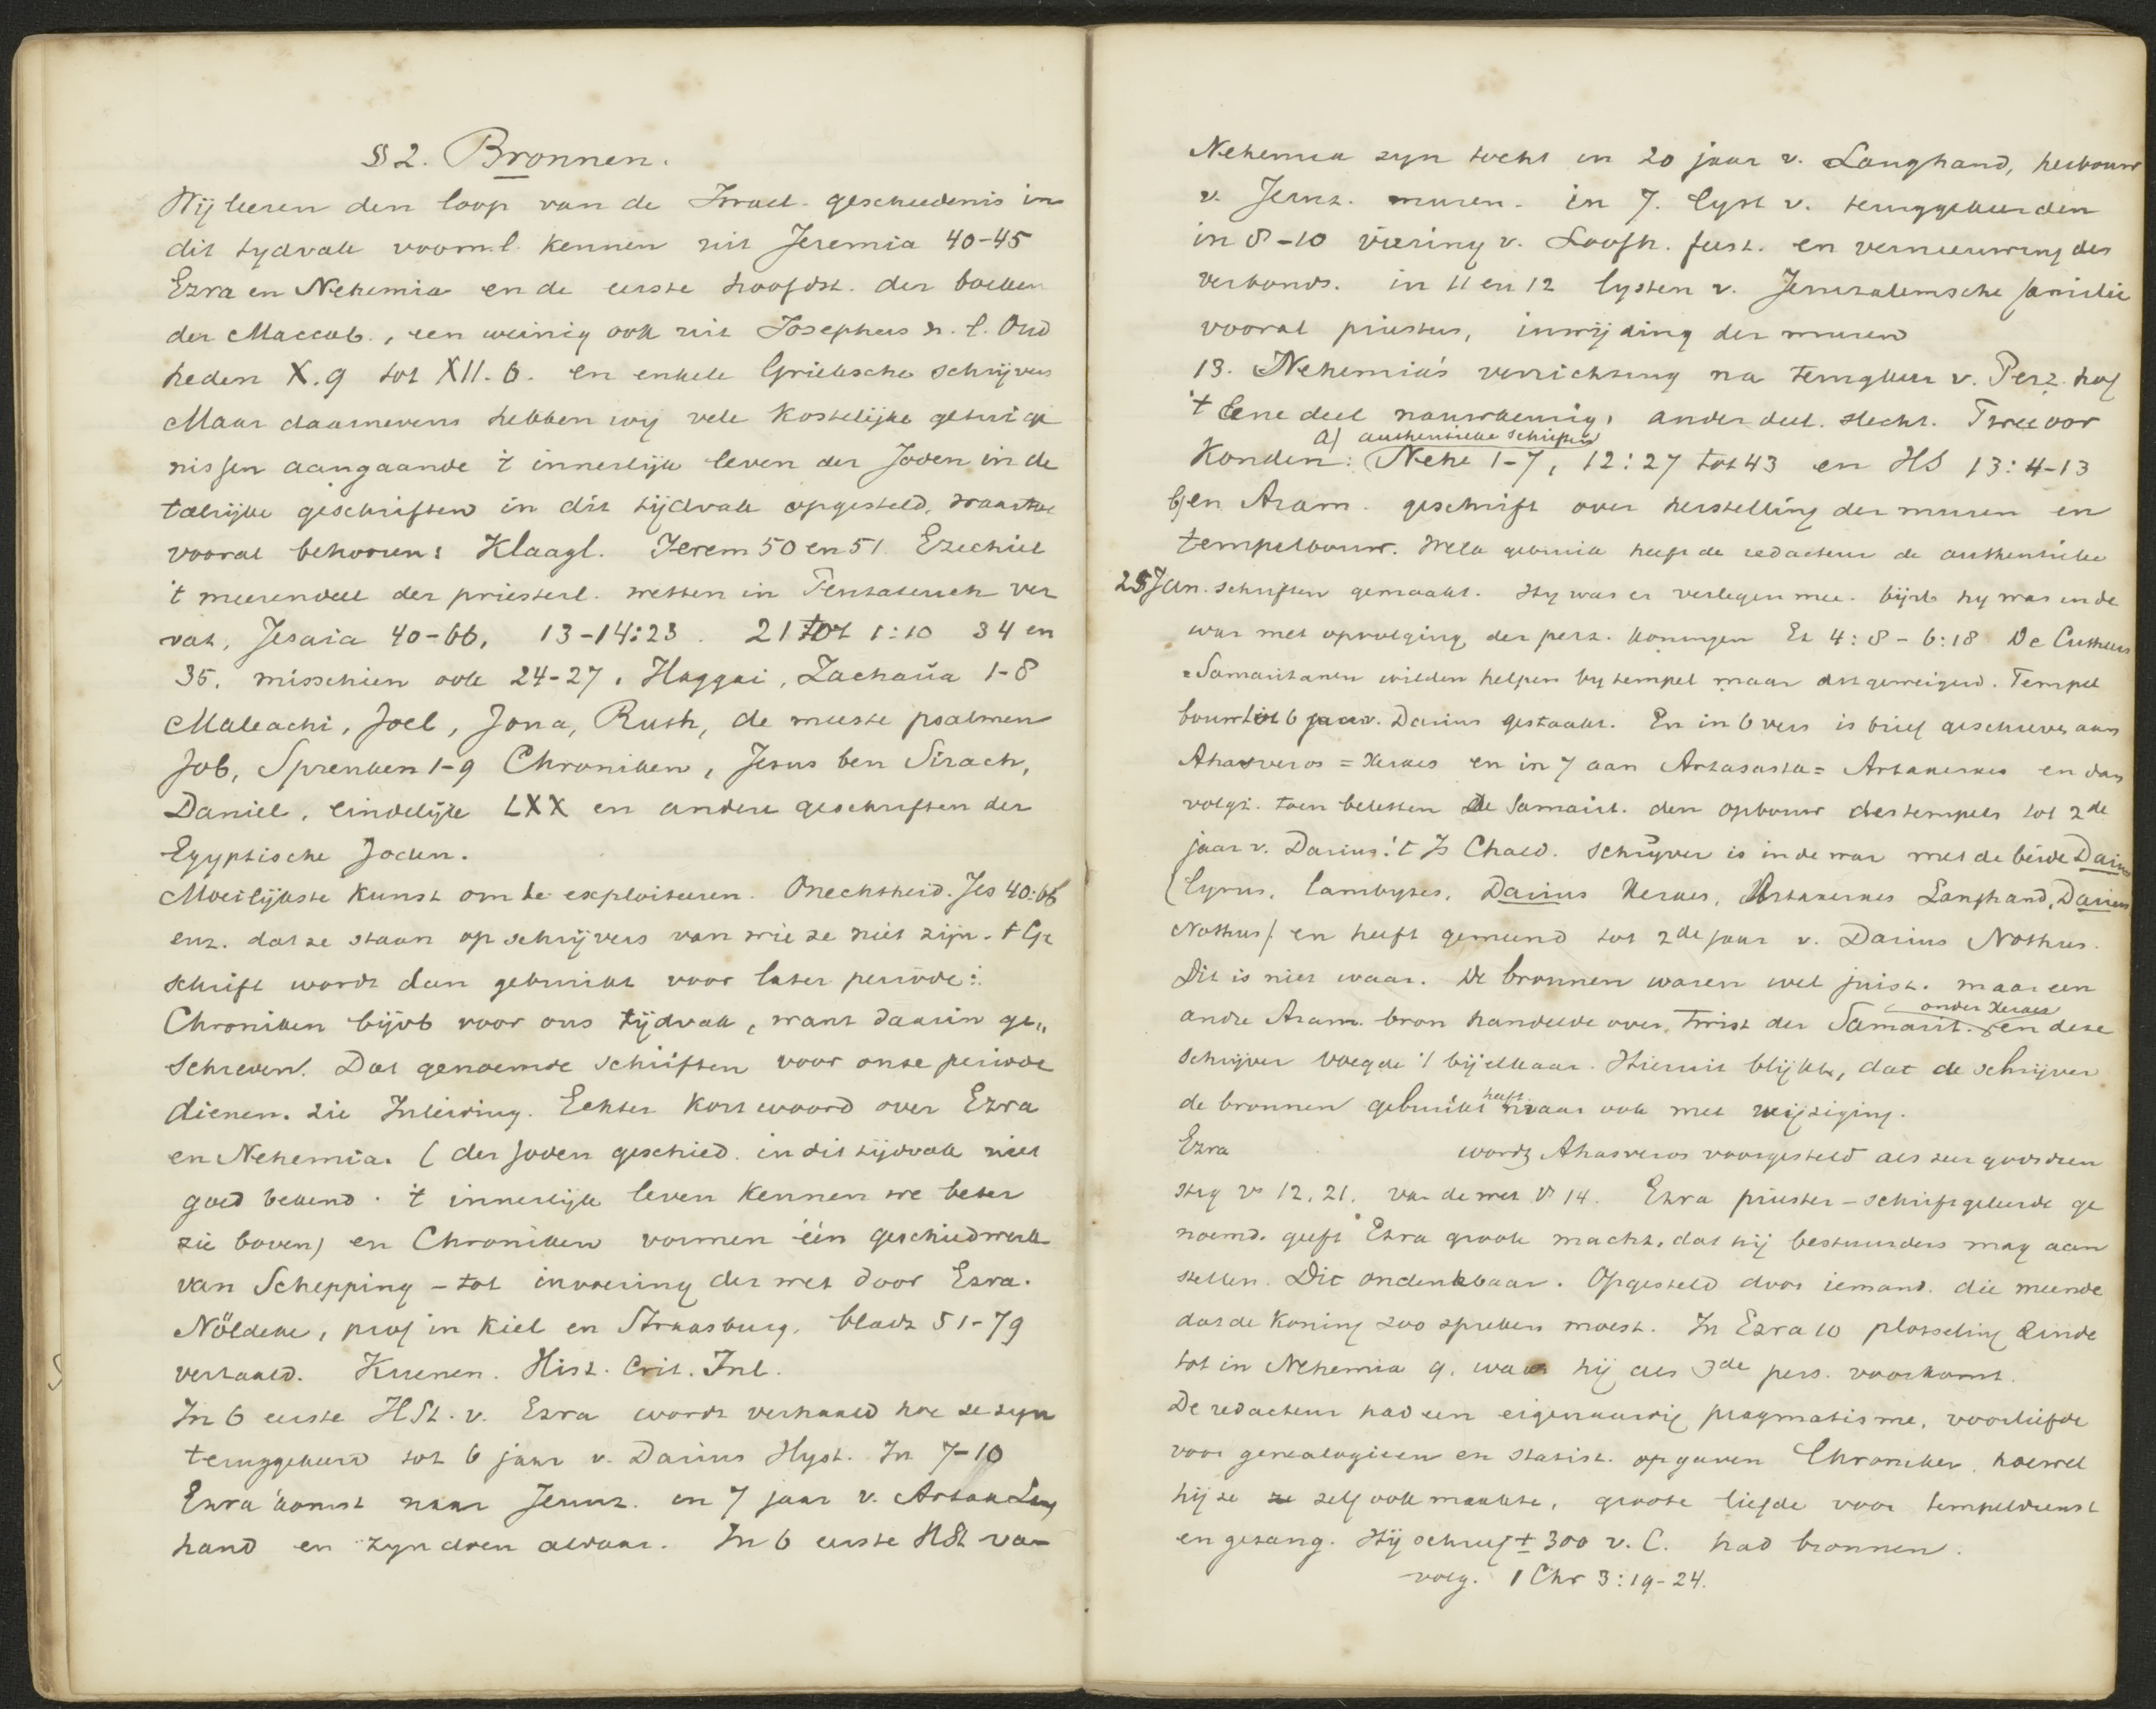 § 2. Bronnen.
Wij leeren den loop van de Israel. geschiedenis in
dit tydvak vooml. kennen uit Jeremia 40-45
Ezra en Nehemia en de eerste hoofdst. der boeken
der Maccab., een weinig ook uit Josephus n. l. Oud
heden X.9 tot XII.6. en enkele Grieksche schrijvers
Maar daarnevens hebben wij vele kostelijke getuige
nissen aangaande 't innerlijk leven der Joden in de
talrijke geschriften in dit tijdvak opgesteld, waartoe
vooral behooren: Klaagl. Jerem 50 en 51. Ezechiel
't meerendeel der priesterl. wetten in Pentateuch ver
vat, Jesaia 40-66, 13-14:23. 21 tot 1:10 34 en
35. misschien ook 24-27. Haggai, Zacharia 1-8
Maleachi, Joel, Jona, Ruth, de meeste psalmen
Job, Spreuken 1-9 Chroniken, Jesus ben Sirach,
Daniel, eindelijk LXX en andere geschriften der
Egyptische Joden.
Moeilijkste kunst om te exploiteeren. Onechtheid. Jes 40:66
enz. dat ze staan op schrijvers van wie ze niet zijn. 't Ge
schrift wordt dan gebruikt voor later periode:
Chroniken bijvb voor ons tijdvak, want daarin ge„
schreven. Dat genoemde schriften voor onze periode
dienen. zie Inleiding. Echter kort woord over Ezra
en Nehemia. (der Joden geschied. in dit tijdvak niet
goed bekend. 't innerlijk leven kennen we beter
zie boven) en Chroniken vormen één geschiedwerk
van Schepping - tot invoering der wet door Ezra.
Nöldeke, prof in Kiel en Straasburg, bladz 51-79
vertaald. Kuenen. Hist. Crit. Inl.
In 6 eerste HSt. v. Ezra wordt verhaald hoe ze zyn
teruggekeerd tot 6 jaar v. Darius Hyst. In 7-10
Ezra komst naar Jeruz. in 7 jaar v. Artax Lang
hand en zyn doen aldaar. In 6 eerste HSt van
Nehemia zyn tocht in 20 jaar v. Langhand, herbouw
v. Jeruz. muren. in 7. lyst v. teruggekeerden
in 8-10 viering v. Loofh. feest. en vernieuwing des
verbonds. in 11 en 12 lysten v. Jeruzalemsche familie
vooral priesters, inwijding der muren
13. Nehemia's verrichting na terugkeer v. Perz. hof
't Eene deel nauwkeurig, ander deel. slecht. Twee oor
a) authentieke schriften
Konden: Nehe 1-7, 12:27 tot 43 en HS 13:4-13
b) en Aram. geschrift over herstelling der muren en
tempelbouw. Welk gebruik heeft de redacteur de authentieke
25 Jan. schriften gemaakt. Hy was er verlegen mee. bijvb hy was in de
war met opvolging der perz. koningen Ez 4:8-6:18 De Cutheers
=Samaritanen wilden helpen by tempel maar dit geweigerd. Tempel
bouw tot 6 jaar v. Darius gestaakt. En in 6 vers is brief geschreven aan
Ahasveros = Xerxes en in 7 aan Artasasta = Artaxerxes en dan
volgt. toen beletten de Samarit. den opbouw des tempels tot 2de
jaar v. Darius. 't Is Chald. schrijver is in de war met de beide Darius
(Cyrus, Cambyzes, Darius Xerxes, Artaxerxes Langhand, Darius
Nothus) en heeft gemeend tot 2de jaar v. Darius Nothus.
Dit is niet waar. De bronnen waren wel juist. maar een
onder Xerxes
andre Aram. bron handelde over, twist der Samarit. en deze
schrijver voegde 't bij elkaar. Hieruit blijkt, dat de schrijver
heeft
de bronnen gebruikt maar ook met wijziging.
Ezra wordt Ahasveros voorgesteld als zeer godsdien
stig vs 12, 21. van de wet vs 14. Ezra priester-schriftgeleerde ge
noemd. geeft Ezra groote macht, dat hij bestuurders mag aan
stellen. Dit ondenkbaar. Opgesteld door iemand, die meende
dat de Koning zoo spreken moest. In Ezra 10 plotseling Einde
tot in Nehemia 9. waar hij als 3de pers. voorkomt.
De redacteur had een eigenaardig pragmatisme, voorliefde
voor genealogieen en statist. opgaven Chroniker, hoewel
hij ze ze zelf ook maakte, groote liefde voor tempeldienst
en gezang. Hij schreef ± 300 v. C. had bronnen.
volg. 1 Chr 3:19-24.